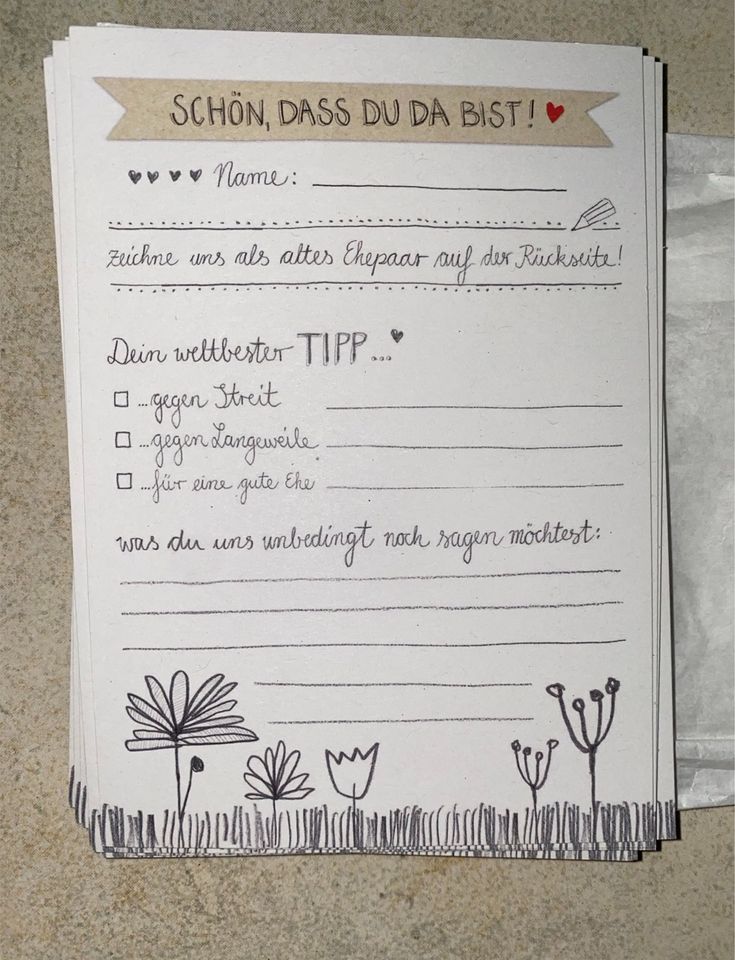 SCHÖN, DASS DU DA BIST!
Name:
Zeichne uns als altes Ehepaar auf der Rückseite!
Dein weltbester TIPP...
...gegen Streit
...gegen Langeweile
...für eine gute Ehe
was du uns unbedingt noch sagen möchtest: